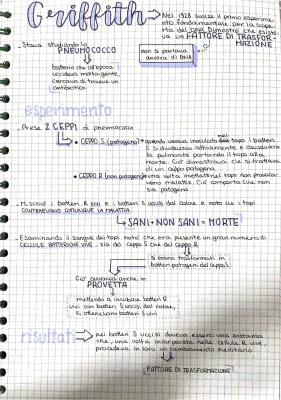 Griffith
→ Nel 1928 svolse il primo esperimento fondamentale per la scoperta del DNA. Dimostrò che esisteva un FATTORE DI TRASFORMAZIONE
. Stava studiando lo PNEUMOCOCCO
non si parlava ancora di DNA
batterio che all'epoca
uccideva molta gente,
cercava di trovare un
antibiotico
esperimento
. Prese 2 CEPPI di pneumococco
• CEPPO S (patogeno) → quando veniva inoculato nel topo i batteri
S si dividevano attivamente e causavano
la polmonite portando il topo alla
morte. Ciò dimostrava che si trattava
di un ceppo patogeno.
• CEPPO R (non patogeno) → una volta nel topo non provocavano malattie. Ciò comporta che non
sia patogeno
. Mischiò i batteri R vivi e i batteri S uccisi dal calore e notò che i topi
CONTRAEVANO COMUNQUE LA MALATTIA
SANI + NON SANI = MORTE
. Esaminando il sangue dei topi notò che era presente un gran numero di
CELLULE BATTERICHE VIVE, sia del ceppo S che del ceppo R
si erano trasformati in
batteri patogeni del ceppo S
Ciò avveniva anche in
PROVETTA
mettendo a incubare batteri R
vivi con batteri S uccisi dal calore,
si ottenevano batteri S vivi
risultati
→ nei batteri S uccisi doveva esserci una sostanza
che, una volta incorporata nelle cellule R vive,
procedeva in loro un cambiamento ereditario
FATTORE DI TRASFORMAZIONE